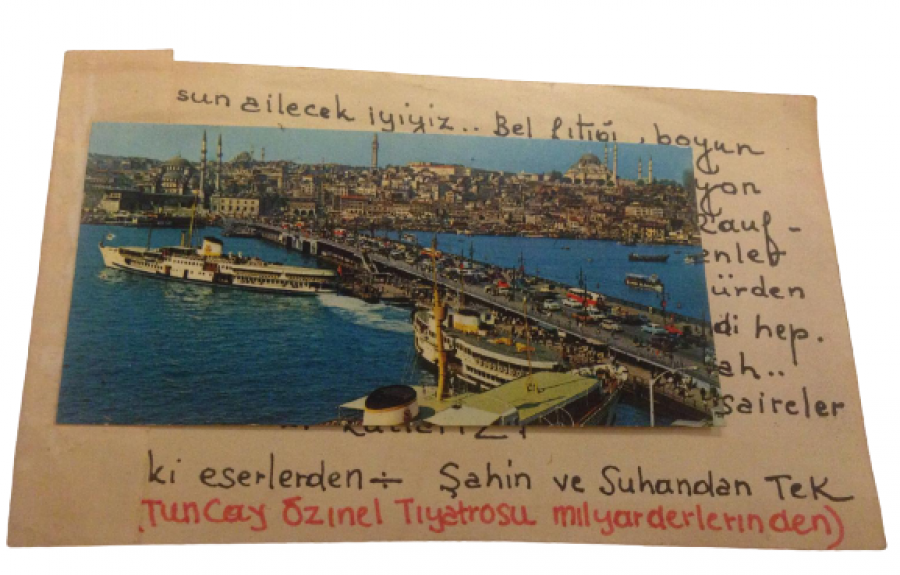 sun ailecek iyiyiz.. Bel fıtığı, boyun
yon
Rauf-
enler
ürden
di hep.
ah..
saireler
ki eserlerden÷ Şahin ve Suhandan Tek
Tuncay Özinel Tiyatrosu milyarderlerinden)